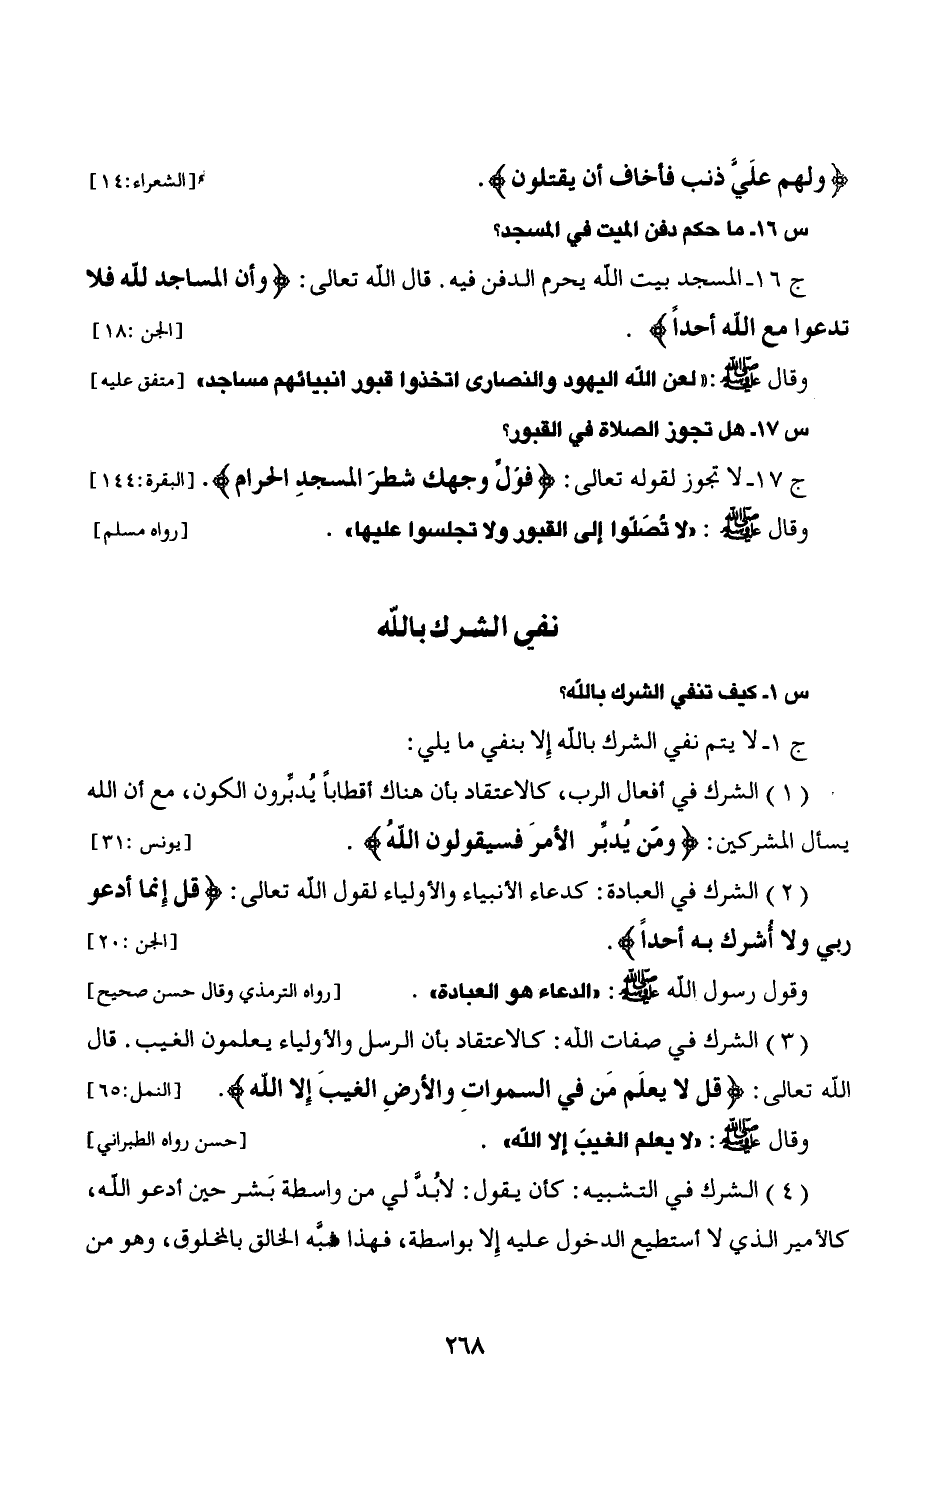 ﴿ ولهم عليَّ ذنب فأخاف أن يقتلون ﴾ . [الشعراء:١٤]
س ١٦ـ ما حكم دفن الميت في المسجد؟
ج ١٦ـ المسجد بيت الله يحرم الدفن فيه . قال الله تعالى : ﴿ وأن المساجد لله فلا
تدعوا مع الله أحداً ﴾ . [الجن :١٨]
وقال ﷺ :« لعن الله اليهود والنصارى اتخذوا قبور انبيائهم مساجد» [متفق عليه]
س ١٧ـ هل تجوز الصلاة في القبور؟
ج ١٧ـ لا تجوز لقوله تعالى : ﴿ فوَلِّ وجهك شطرَ المسجدِ الحرام ﴾ . [البقرة:١٤٤]
وقال ﷺ : «لا تُصَلّوا إلى القبور ولا تجلسوا عليها» . [رواه مسلم]
نفي الشرك بالله
س ١ـ كيف تنفي الشرك بالله؟
ج ١ـ لا يتم نفي الشرك بالله إلا بنفي ما يلي :
(١) الشرك في أفعال الرب، كالاعتقاد بأن هناك أقطاباً يُدبِّرون الكون، مع أن الله
يسأل المشركين : ﴿ ومَن يُدبِّر الأمرَ فسيقولون اللهُ ﴾ . [يونس :٣١]
(٢) الشرك في العبادة : كدعاء الأنبياء والأولياء لقول الله تعالى : ﴿ قل إنما أدعو
ربي ولا أُشرك به أحداً ﴾ . [الجن :٢٠]
وقول رسول الله ﷺ : «الدعاء هو العبادة» . [رواه الترمذي وقال حسن صحيح]
(٣) الشرك في صفات الله : كالاعتقاد بأن الرسل والأولياء يعلمون الغيب . قال
الله تعالى : ﴿ قل لا يعلَم مَن في السمواتِ والأرضِ الغيبَ إلا الله ﴾ . [النمل:٦٥]
وقال ﷺ : «لا يعلم الغيبَ إلا الله» . [حسن رواه الطبراني]
(٤) الشرك في التشبيه : كأن يقول : لابُدَّ لي من واسطة بَشر حين أدعو الله،
كالأمير الذي لا أستطيع الدخول عليه إلا بواسطة، فهذا شبَّه الخالق بالمخلوق، وهو من
٢٦٨